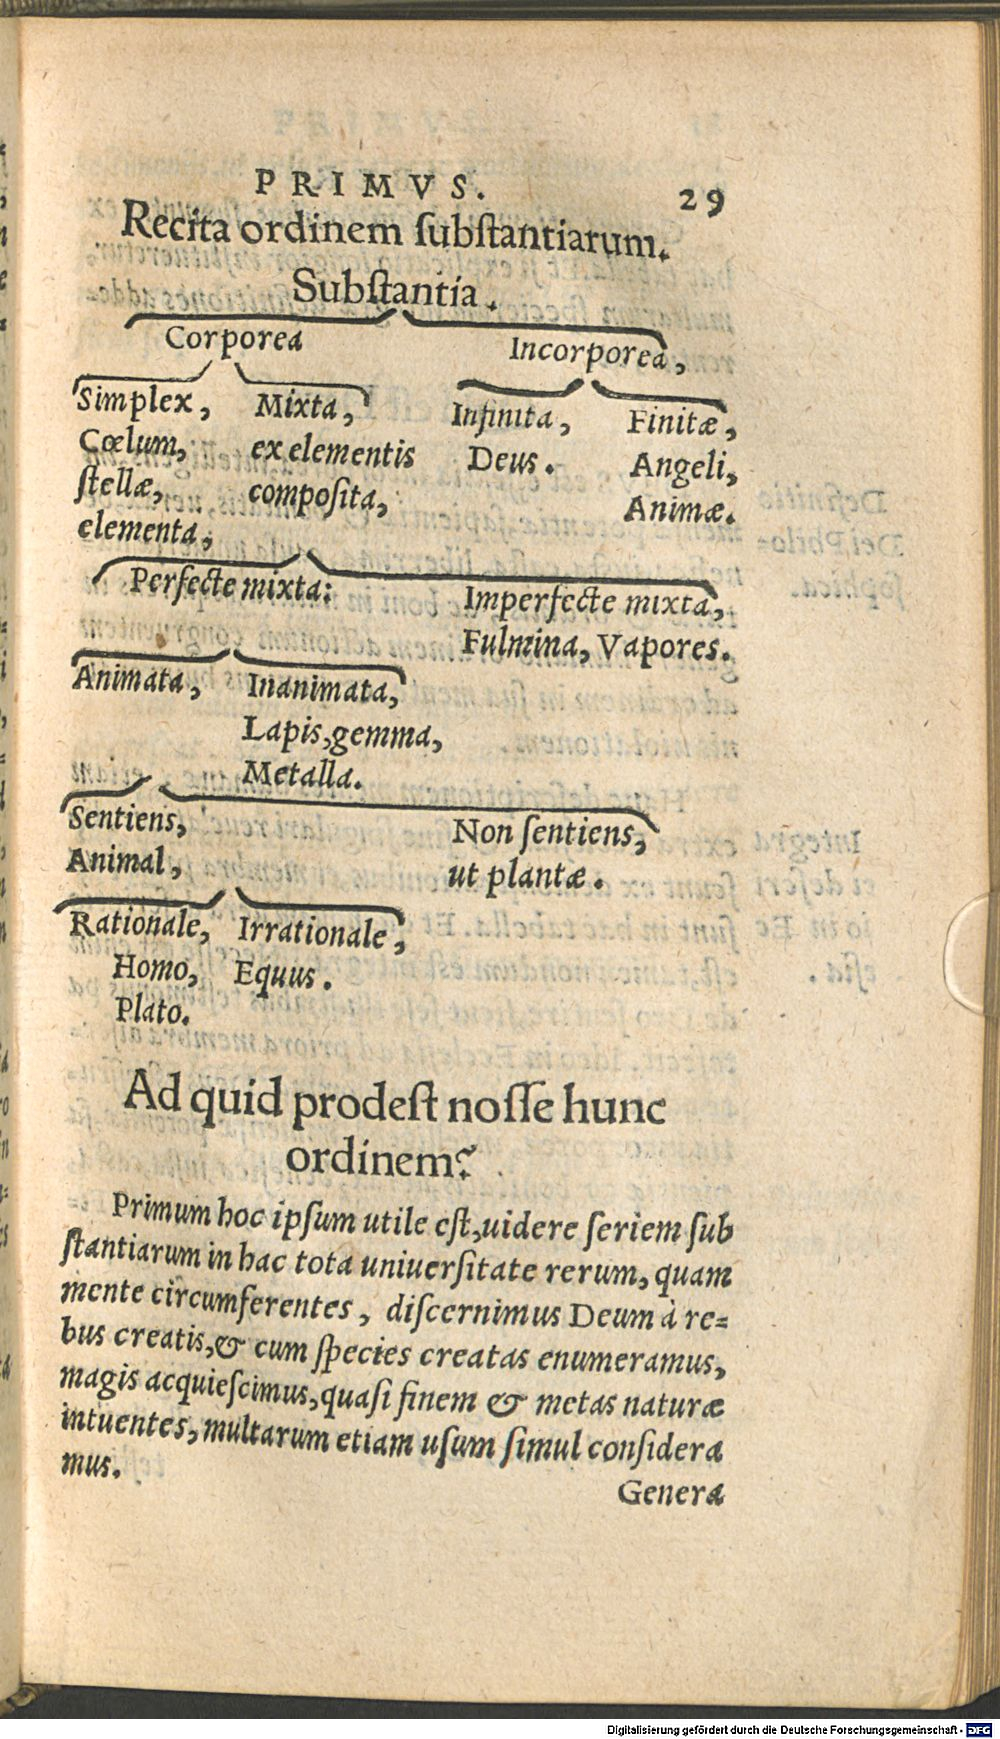 PRIMVS. 29
Recita ordinem ſubſtantiarum.
Subſtantia.
Corporea Incorporea,
Simplex, Mixta, Infinita, Finitæ,
Cœlum, ex elementis Deus. Angeli,
ſtellæ, compoſita, Animæ.
elementa,
Perfecte mixta: Imperfecte mixta,
Fulmina, Vapores.
Animata, Inanimata,
Lapis, gemma,
Metalla.
Sentiens, Non ſentiens,
Animal, ut plantæ.
Rationale, Irrationale,
Homo, Equus.
Plato.
Ad quid prodeſt noſſe hunc
ordinem?
Primum hoc ipſum utile eſt, uidere ſeriem ſub
ſtantiarum in hac tota uniuerſitate rerum, quam
mente circumferentes, diſcernimus Deum à re=
bus creatis, & cum ſpecies creatas enumeramus,
magis acquieſcimus, quaſi finem & metas naturæ
intuentes, multarum etiam uſum ſimul conſidera
mus.
Genera
Digitalisierung gefördert durch die Deutsche Forschungsgemeinschaft - DFG